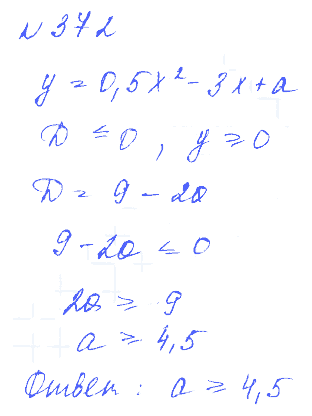 № 372
y = 0,5x² - 3x + a
D ≤ 0, y ≥ 0
D = 9 - 2a
9 - 2a ≤ 0
2a ≥ 9
a ≥ 4,5
Ответ: a ≥ 4,5